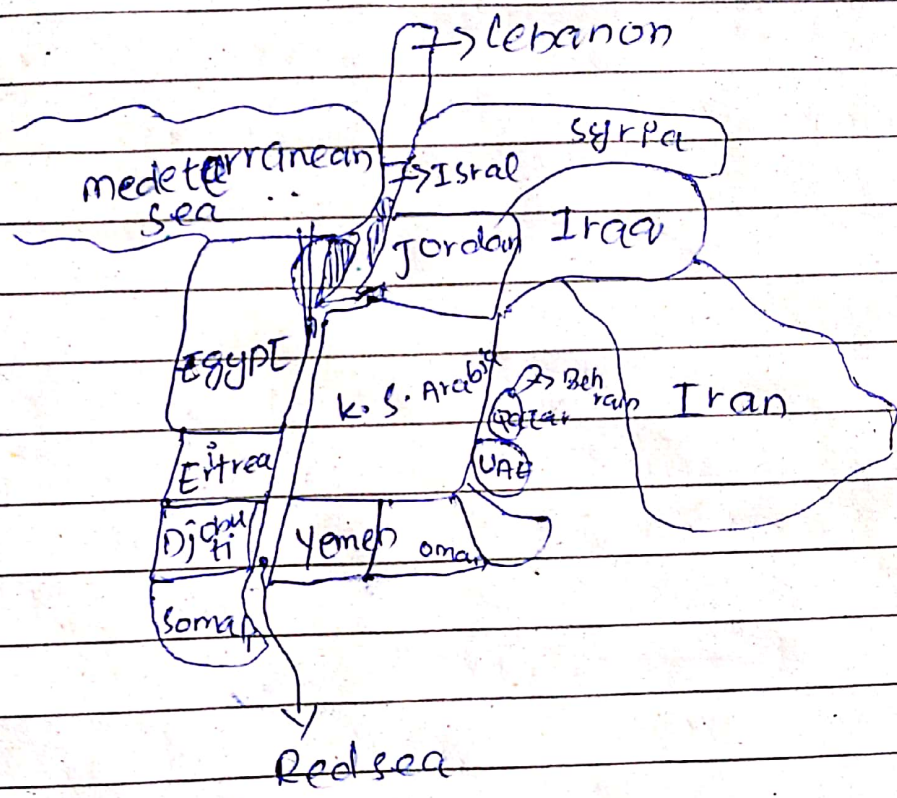 Lebanon
Syria
medeterranean
sea
Isral
Jordan
Iraq
Egypt
K. S. Arabia
Beh
rain
Qatar
Iran
UAE
Eritrea
Djibu
ti
Yemen
Oman
Somali
Red sea